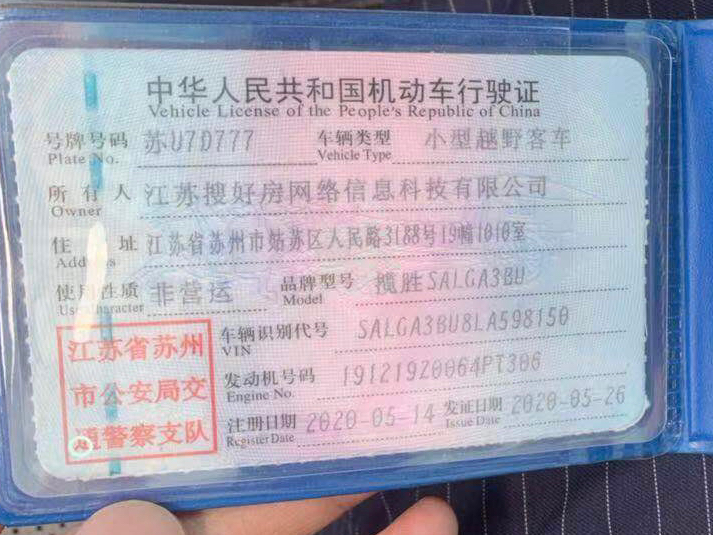 中华人民共和国机动车行驶证
Vehicle License of the People's Republic of China
号牌号码 苏U7D777 车辆类型 小型越野客车
Plate No. Vehicle Type
所有人 江苏搜好房网络信息科技有限公司
Owner
住址 江苏省苏州市姑苏区人民路3188号19幢1010室
Address
使用性质 非营运 品牌型号 揽胜SALGA3BU
Use Character Model
江苏省苏州 车辆识别代号 SALGA3BU8LA598150
VIN
市公安局交 发动机号码 191219Z0064PT306
Engine No.
通警察支队 注册日期 2020-05-14 发证日期 2020-05-26
Register Date Issue Date